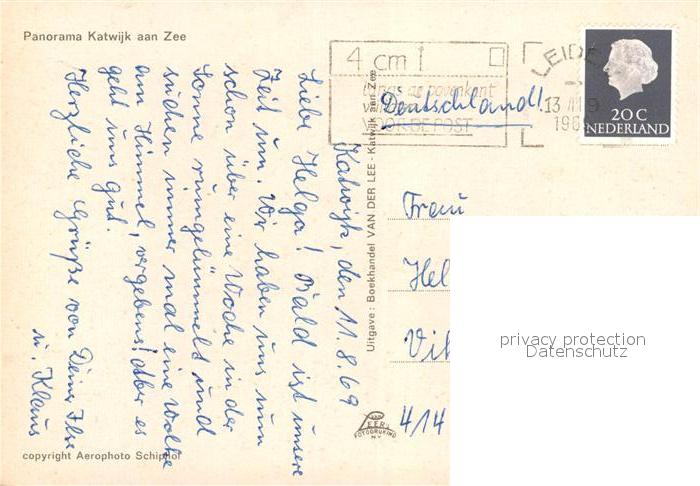 Panorama Katwijk aan Zee
Katwijk, den 11.8.69
Liebe Helga! Bald ist unsere
Zeit um. Wir haben uns nun
schon über eine Woche in der
Sonne rumgelümmelt und
suchen immer mal eine Wolke
am Himmel, vergebens! Aber es
geht uns gut.
Herzliche Grüße von Deiner Ilse
u. Klaus
copyright Aerophoto Schiphol
Uitgave: Boekhandel VAN DER LEE - Katwijk aan Zee
VAN LEER'S
FOTODRUKIND
N.V.
4 cm
langs de bovenkant
VOOR DE POST
LEIDEN
13 19
196
20 C
NEDERLAND
Deutschland!
Frau
Hel
Vil
4/14
privacy protection
Datenschutz